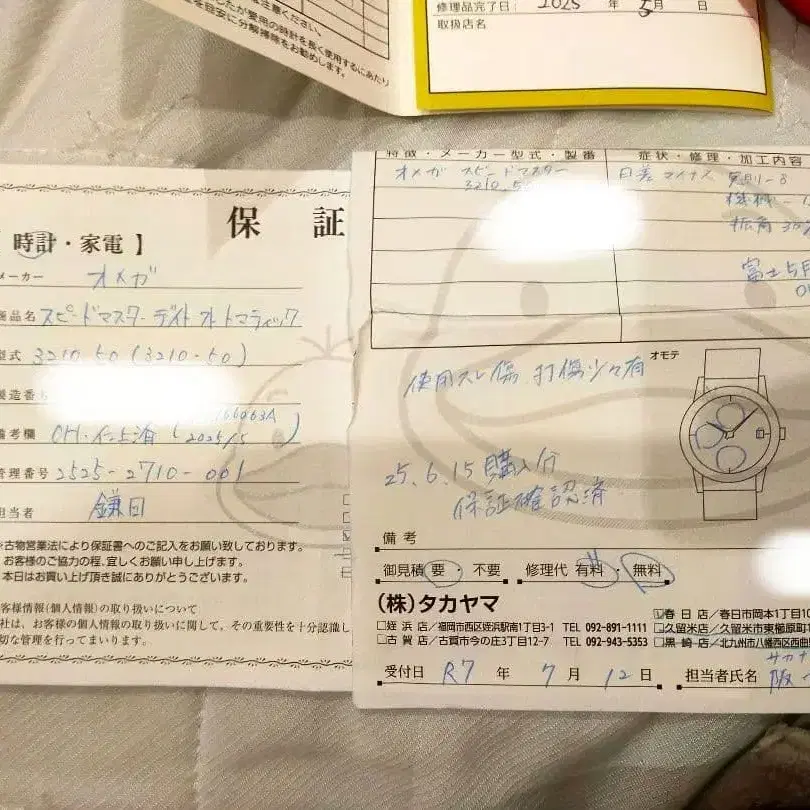 ご注意ください。
したが愛用の時計を長く使用するにあたり
を目安に分解掃除をお勧めします。
修理品完了日: 2025 年 5月 日
取扱店名
保 証
時計・家電 】
メーカー オメガ
商品名 スピードマスターデイト オートマティック
型式 3210.50 (3210-50)
製造番号
備考欄 OH・仕上済 (2025/5)
管理番号 2525-2710-001
担当者 鎌田
※古物営業法により保証書へのご記入をお願い致しております。
お客様のご協力の程、宜しくお願い申し上げます。
本日はお買い上げ頂き誠にありがとうございます。
お客様情報(個人情報)の取り扱いについて
社は、お客様情報の取り扱いに関して、その重要性を十分認識し
切な管理を行ってまいります。
特徴・メーカー型式・製番 症状・修理・加工内容
オメガ スピードマスター 日差マイナス
3210.50
振角
富士5月
使用スレ傷 打傷少々有
オモテ
25.6.15購入分
保証確認済
備考
御見積 要・不要 修理代 有料・無料
(株)タカヤマ
□姪浜店/福岡市西区姪浜駅南1丁目3-1 TEL 092-891-1111
□古賀店/古賀市今の庄3丁目12-7 TEL 092-943-5353
春日店/春日市岡本1丁目10
□久留米店/久留米市東櫛原町
□黒崎店/北九州市八幡西区西曲
受付日 R7 年 7 月 12 日 担当者氏名